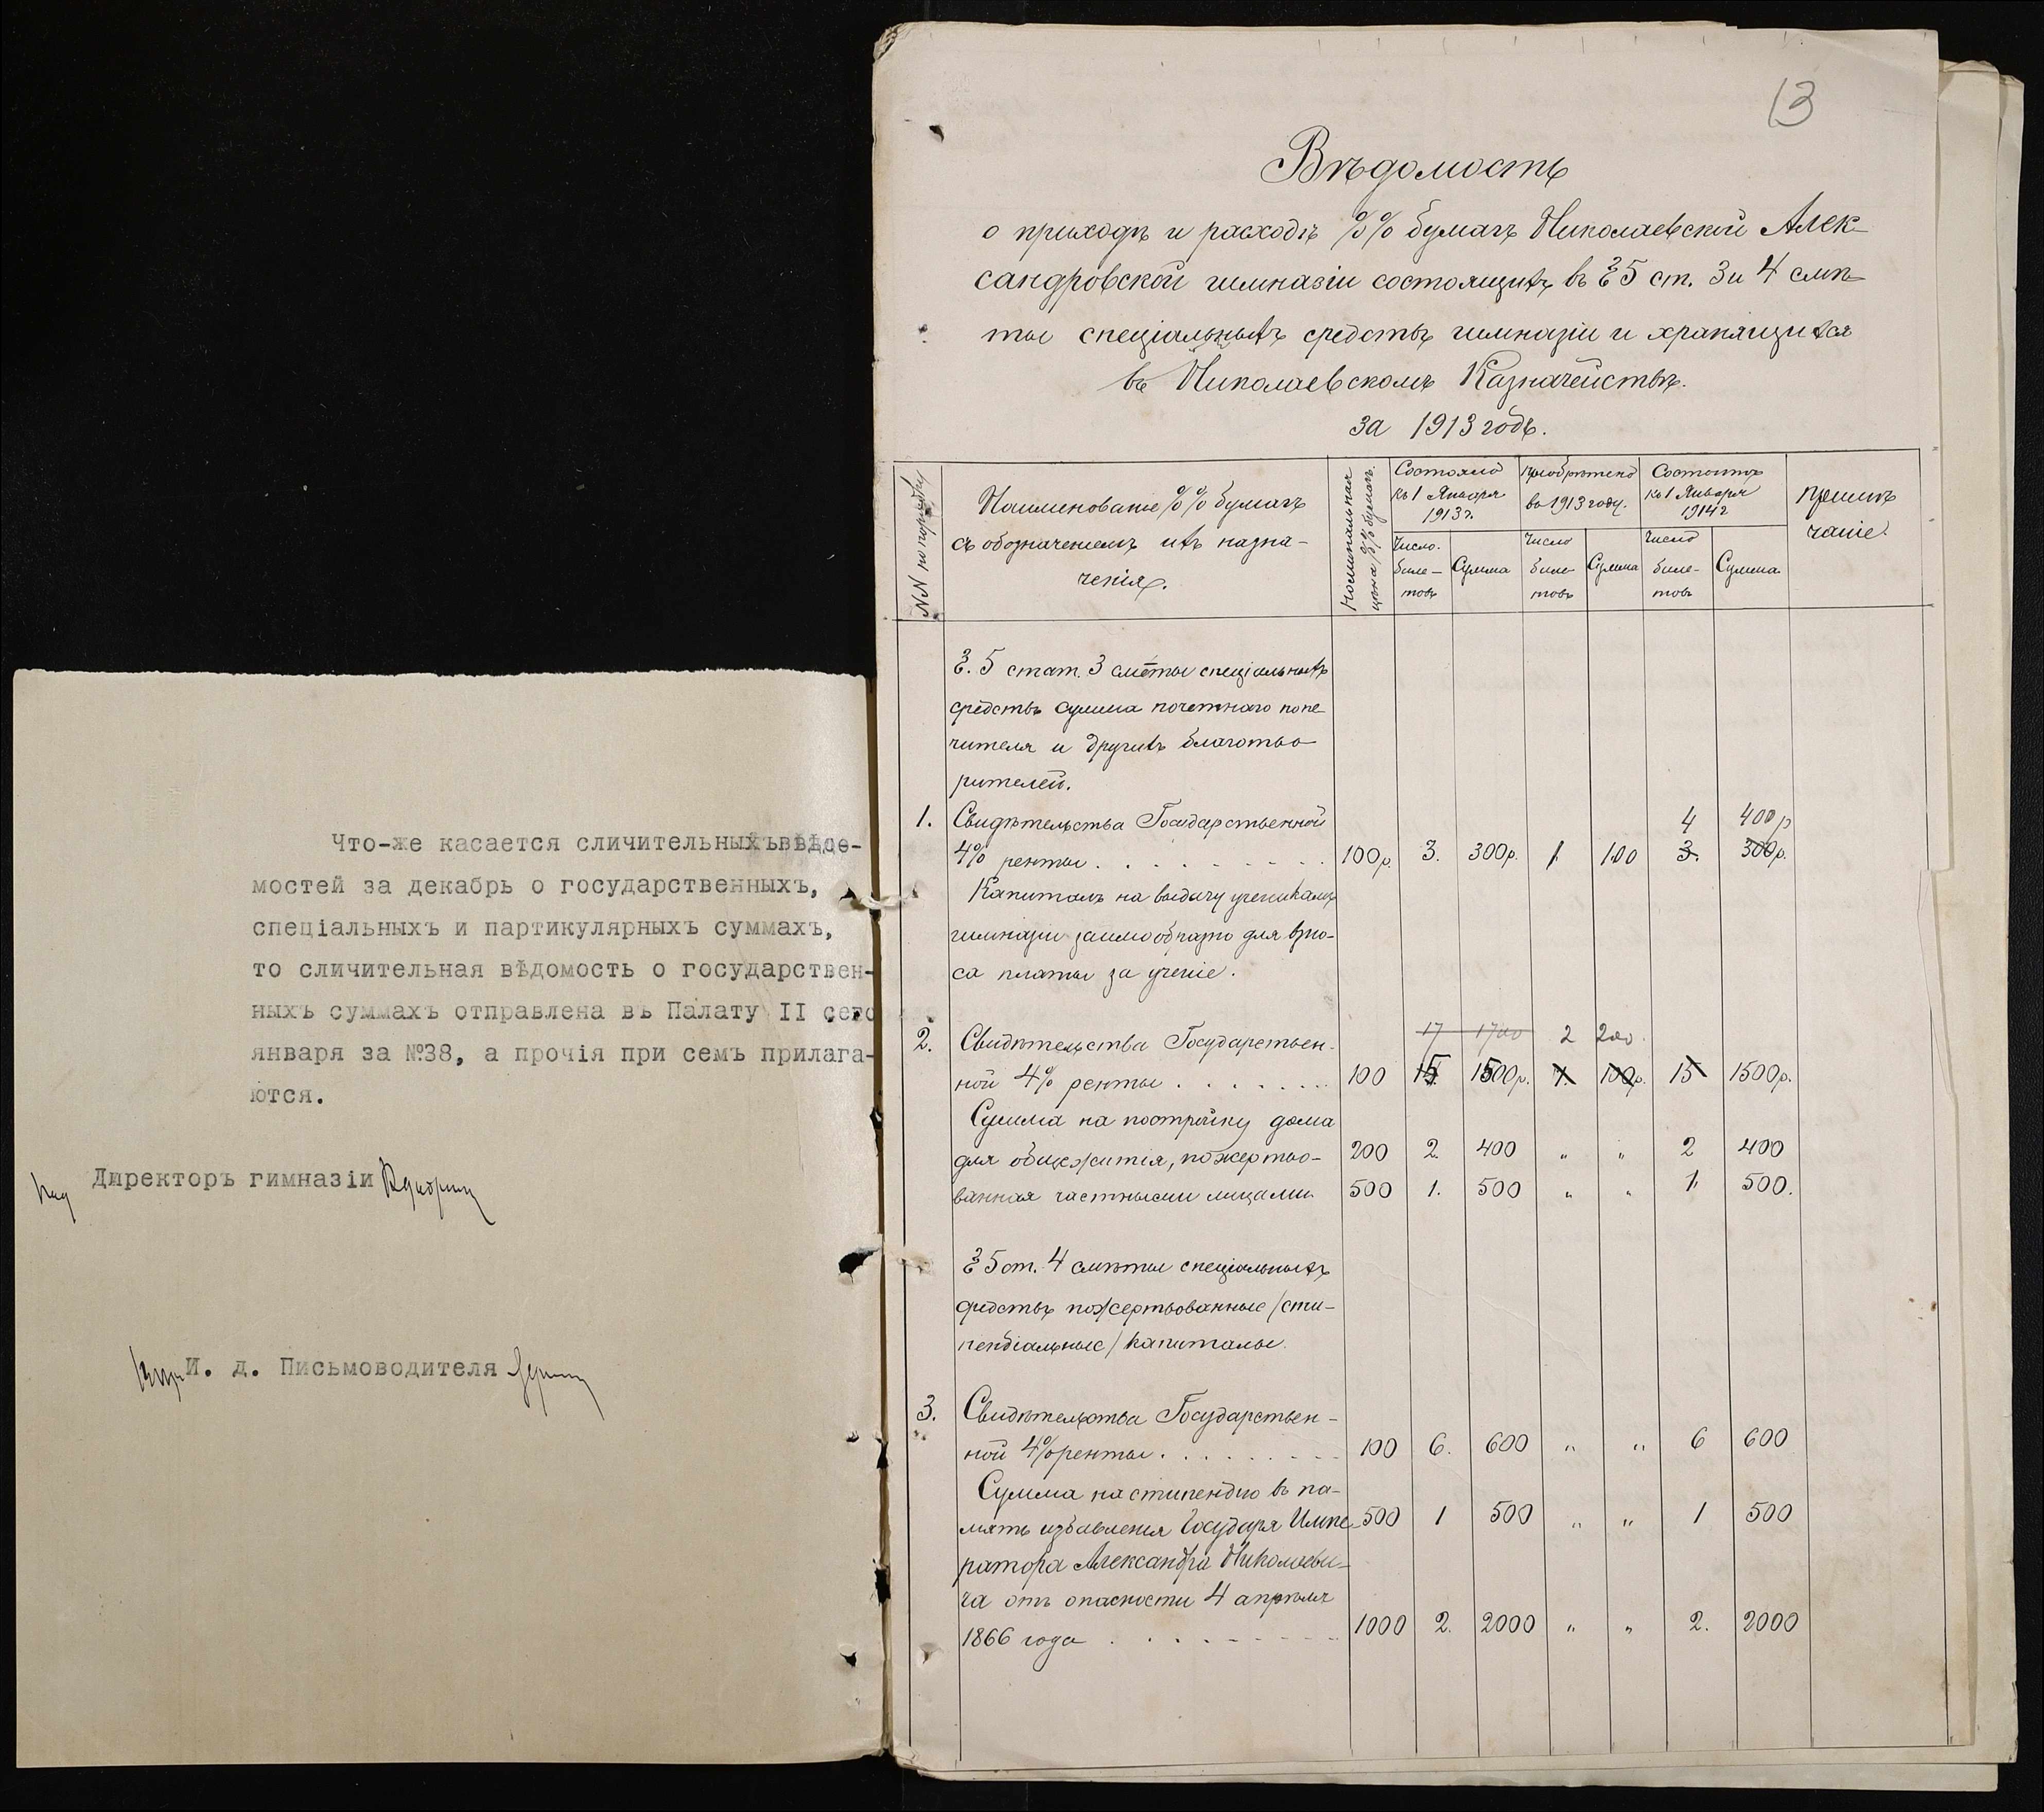 Что-же касается сличительныхъ вѣдо-
мостей за декабрь о государственныхъ,
спеціальныхъ и партикулярныхъ суммахъ,
то сличительная вѣдомость о государствен-
ныхъ суммахъ отправлена въ Палату II сего
января за №38, а прочія при семъ прилага-
ются.
Директоръ гимназіи
И. д. Письмоводителя
13
Вѣдомость
о приходѣ и расходѣ %% бумагъ Николаевской Алек-
сандровской гимназіи состоящихъ въ § 5 ст. 3 и 4 смѣ-
ты спеціальныхъ средствъ гимназіи и хранящихся
въ Николаевскомъ Казначействѣ.
за 1913 годъ.
NN по порядку
Наименованіе %% бумагъ
съ обозначеніемъ ихъ назна-
ченія.
Номинальная
цѣна %% бумагъ.
Состояло
къ 1 Января
1913 г.
Пріобрѣтено
въ 1913 году.
Состоитъ
къ 1 Января
1914 г
Примѣ
чаніе.
Число
биле-
товъ
Сумма
Число
биле
товъ
Сумма
Число
биле-
товъ
Сумма
§. 5 стат. 3 смѣты спеціальныхъ
средствъ сумма почетнаго попе-
чителя и другихъ благотво-
рителей.
1. Свидѣтельства Государственной 4 400р
4% ренты . . . . . 100р. 3. 300р. 1. 100 3. 300р.
Капиталъ на выдачу ученикамъ
гимназіи заимообразно для взно-
са платы за ученіе.
2. Свидѣтельства Государствен- 17 1700 2 200
ной 4% ренты . . . . . . . 100 15 1500р. 1. 100р. 15 1500р.
Сумма на постройку дома
для общежитія, пожертво- 200 2. 400 " " 2 400
ванная частными лицами. 500 1. 500 " " 1. 500.
§ 5 ст. 4 смѣты спеціальныхъ
средствъ пожертвованные /сти-
пендіальные/ капиталы.
3. Свидѣтельства Государствен-
ной 4% ренты . . . . . . . 100 6. 600 " " 6 600
Сумма на стипендію въ па-
мять избавленія Государя Импе- 500 1 500 " " 1 500
ратора Александра Николаеви-
ча отъ опасности 4 апрѣля
1866 года . . . . . . . 1000 2. 2000 " " 2. 2000